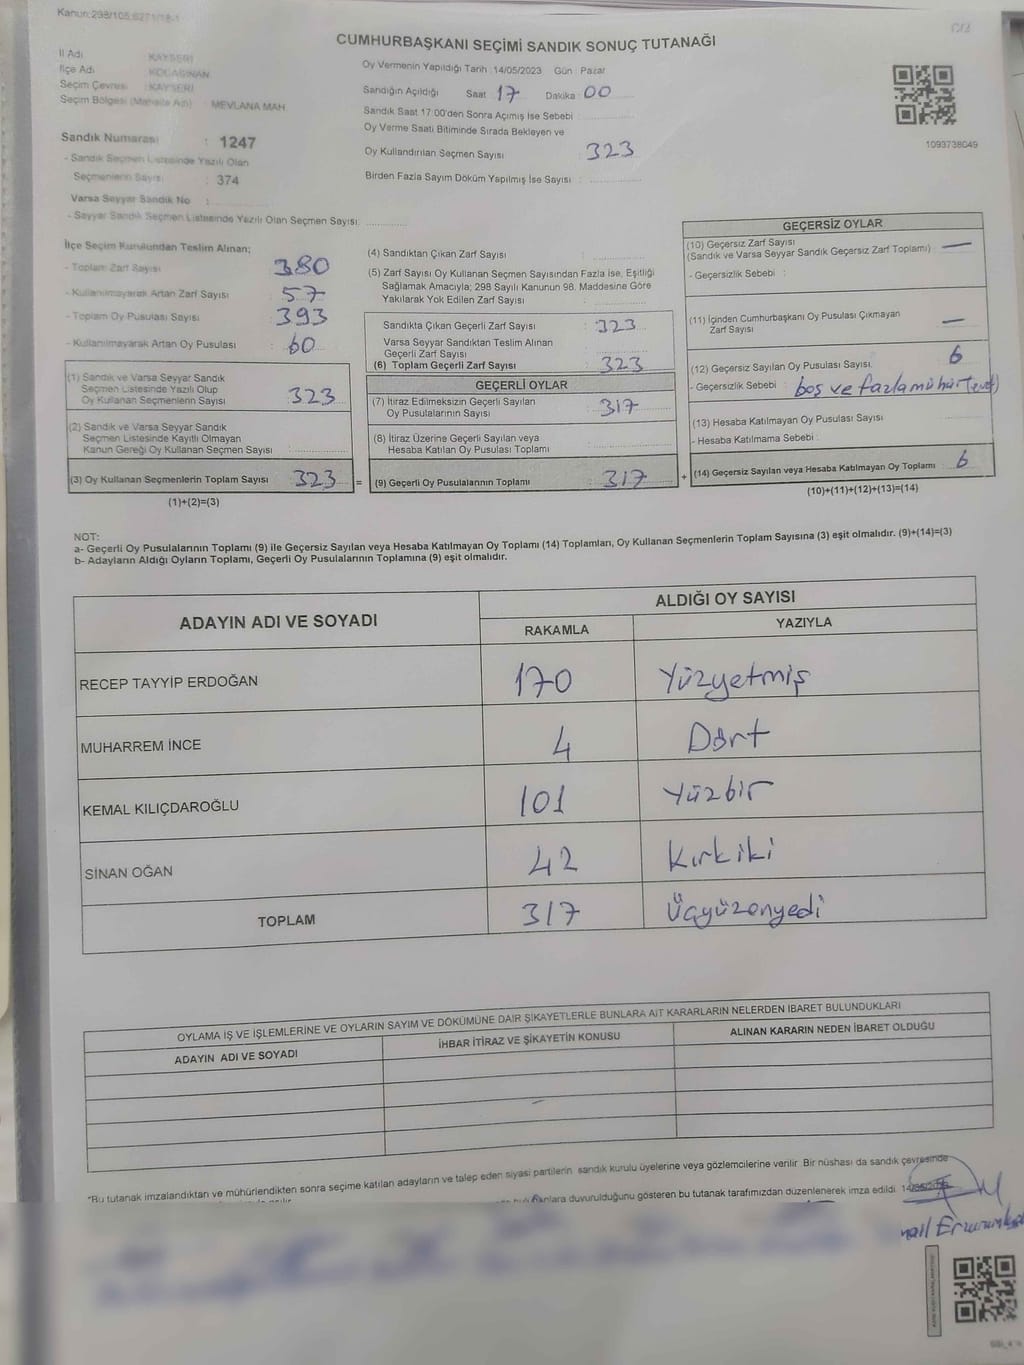 Kanun:298/105;6271/18-1
CUMHURBAŞKANI SEÇİMİ SANDIK SONUÇ TUTANAĞI
İl Adı : KAYSERİ
İlçe Adı : KOCASİNAN
Seçim Çevresi : KAYSERİ
Seçim Bölgesi (Mahalle Adı) : MEVLANA MAH.
Sandık Numarası : 1247
- Sandık Seçmen Listesinde Yazılı Olan
Seçmenlerin Sayısı : 374
Varsa Seyyar Sandık No :
- Seyyar Sandık Seçmen Listesinde Yazılı Olan Seçmen Sayısı:
Oy Vermenin Yapıldığı Tarih :14/05/2023 Gün : Pazar
Sandığın Açıldığı Saat 17 Dakika 00
Sandık Saat 17:00'den Sonra Açımış İse Sebebi :
Oy Verme Saati Bitiminde Sırada Bekleyen ve
Oy Kullandırılan Seçmen Sayısı : 323
Birden Fazla Sayım Döküm Yapılmış İse Sayısı :
1093738049
İlçe Seçim Kurulundan Teslim Alınan;
- Toplam Zarf Sayısı : 380
- Kullanılmayarak Artan Zarf Sayısı : 57
- Toplam Oy Pusulası Sayısı : 393
- Kullanılmayarak Artan Oy Pusulası : 60
(1) Sandık ve Varsa Seyyar Sandık
Seçmen Listesinde Yazılı Olup
Oy Kullanan Seçmenlerin Sayısı : 323
(2) Sandık ve Varsa Seyyar Sandık
Seçmen Listesinde Kayıtlı Olmayan
Kanun Gereği Oy Kullanan Seçmen Sayısı :
(3) Oy Kullanan Seçmenlerin Toplam Sayısı : 323 =
(1)+(2)=(3)
(4) Sandıktan Çıkan Zarf Sayısı :
(5) Zarf Sayısı Oy Kullanan Seçmen Sayısından Fazla İse, Eşitliği
Sağlamak Amacıyla; 298 Sayılı Kanunun 98. Maddesine Göre
Yakılarak Yok Edilen Zarf Sayısı :
Sandıkta Çıkan Geçerli Zarf Sayısı : 323
Varsa Seyyar Sandıktan Teslim Alınan
Geçerli Zarf Sayısı :
(6) Toplam Geçerli Zarf Sayısı : 323
GEÇERLİ OYLAR
(7) İtiraz Edilmeksizin Geçerli Sayılan
Oy Pusulalarının Sayısı : 317
(8) İtiraz Üzerine Geçerli Sayılan veya
Hesaba Katılan Oy Pusulası Toplamı :
(9) Geçerli Oy Pusulalarının Toplamı : 317 +
GEÇERSİZ OYLAR
(10) Geçersiz Zarf Sayısı
(Sandık ve Varsa Seyyar Sandık Geçersiz Zarf Toplamı) : —
- Geçersizlik Sebebi :
(11) İçinden Cumhurbaşkanı Oy Pusulası Çıkmayan
Zarf Sayısı : —
(12) Geçersiz Sayılan Oy Pusulası Sayısı : 6
- Geçersizlik Sebebi : boş ve fazla mühür
(13) Hesaba Katılmayan Oy Pusulası Sayısı :
- Hesaba Katılmama Sebebi :
(14) Geçersiz Sayılan veya Hesaba Katılmayan Oy Toplamı : 6
(10)+(11)+(12)+(13)=(14)
NOT:
a- Geçerli Oy Pusulalarının Toplamı (9) ile Geçersiz Sayılan veya Hesaba Katılmayan Oy Toplamı (14) Toplamları, Oy Kullanan Seçmenlerin Toplam Sayısına (3) eşit olmalıdır. (9)+(14)=(3)
b- Adayların Aldığı Oyların Toplamı, Geçerli Oy Pusulalarının Toplamına (9) eşit olmalıdır.
ADAYIN ADI VE SOYADI ALDIĞI OY SAYISI
RAKAMLA YAZIYLA
RECEP TAYYİP ERDOĞAN 170 Yüzyetmiş
MUHARREM İNCE 4 Dört
KEMAL KILIÇDAROĞLU 101 Yüzbir
SİNAN OĞAN 42 Kırkiki
TOPLAM 317 Üçyüzonyedi
OYLAMA İŞ VE İŞLEMLERİNE VE OYLARIN SAYIM VE DÖKÜMÜNE DAİR ŞİKAYETLERLE BUNLARA AİT KARARLARIN NELERDEN İBARET BULUNDUKLARI
ADAYIN ADI VE SOYADI İHBAR İTİRAZ VE ŞİKAYETİN KONUSU ALINAN KARARIN NEDEN İBARET OLDUĞU
*Bu tutanak imzalandıktan ve mühürlendikten sonra seçime katılan adayların ve talep eden siyasi partilerin sandık kurulu üyelerine veya gözlemcilerine verilir. Bir nüshası da sandık çevresinde
duvurulduğunu gösteren bu tutanak tarafımızdan düzenlenerek imza edildi. 14/05/2023